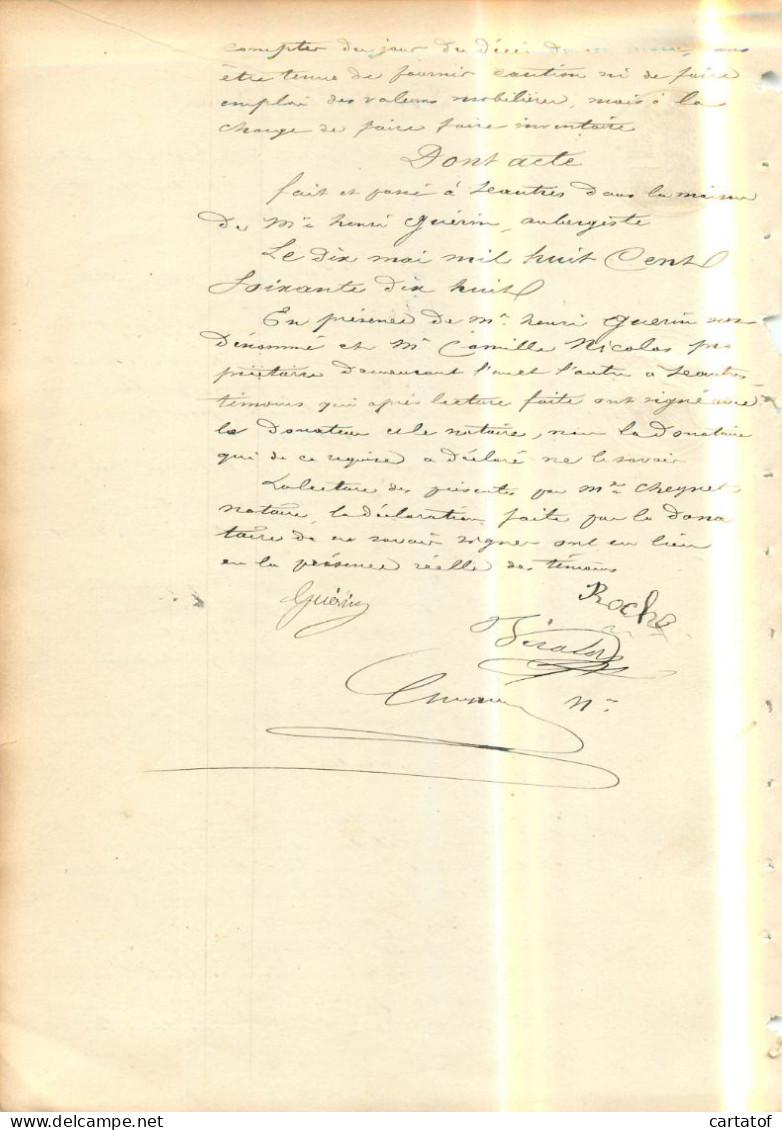 compter du jour du décès
être tenue de fournir caution ni de faire
emploi des valeurs mobilières, mais à la
charge de faire faire inventaire
Dont acte
fait et passé à Leautres dans la maison
De Mr henri Guérin, aubergiste
Le dix mai mil huit Cent
Soixante dix huit
En présence de Mr henri Guerin
Dénommé et Mr Camille Nicolas pro
priétaire demeurant l'un et l'autre à Leautres
témoins qui après lecture faite ont signé avec
le Donateur et le notaire, non la Donataire
qui de ce requise a déclaré ne le savoir
La lecture des présentes par Me Cheynet
notaire, la déclaration faite par la dona
taire de ne savoir signer ont eu lieu
en la présence réelle des témoins
Guérin
Roche
Nicolas
Nre
cartatof